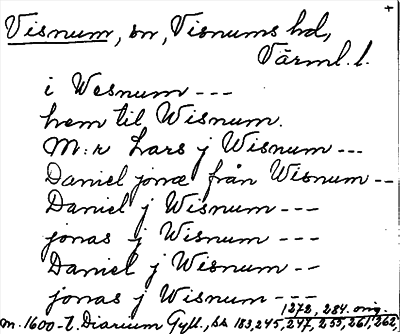 Visnum, sn, Visnums hd,
Värml. l.
i Wesnum ---
hem til Wisnum.
M:r Lars j Wisnum ---
Daniel jonæ från Wisnum --
Daniel j Wisnum ---
jonas j Wisnum ---
Daniel j Wisnum --
jonas j Wisnum ---
1272, 284. orig.
m. 1600-t. Diarium Gyll., bl. 183, 245, 247, 255, 261, 262,